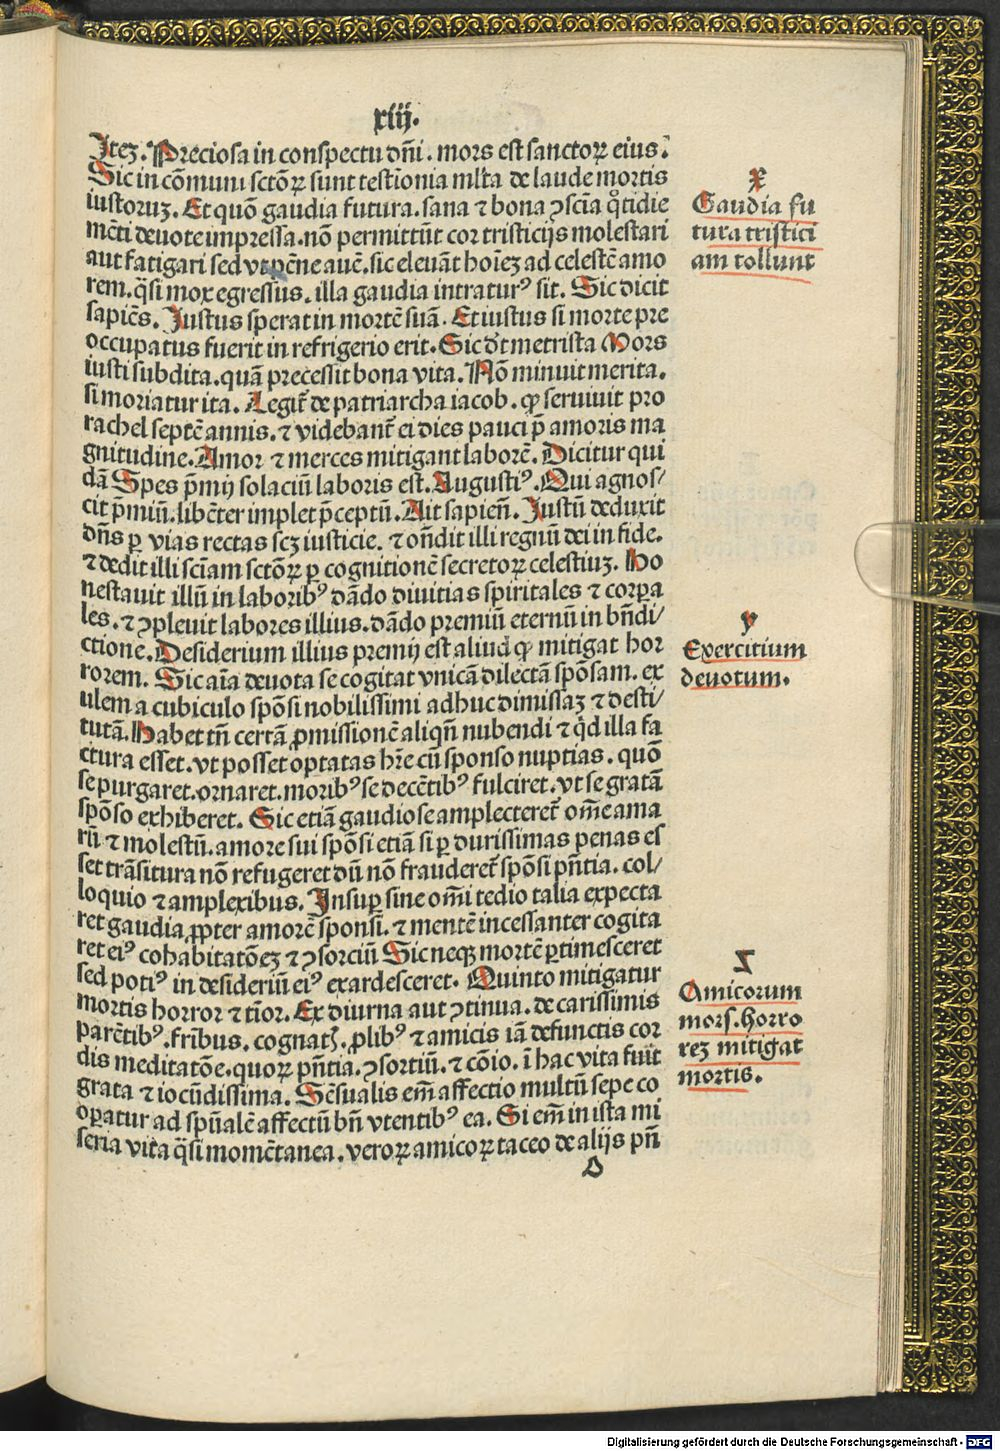 xiij.
Iteꝫ. Preciosa in conspectu dñi. mors est sanctoꝝ eius.
Sic in cõmuni sctõꝝ sunt testiõnia ml̃ta de laude mortis
iustoruꝫ. Et quõ gaudia futura. sana ⁊ bona ꝯsciã q̊tidie
mẽti deuote impressa. nõ permittũt cor tristicijs molestari
aut fatigari sed vt pẽne auẽ. sic eleuãt hoĩeꝫ ad celestẽ amo
rem. q̃si mox egressus. illa gaudia intraturꝰ sit. Sic dicit
sapiẽs. Iustus sperat in mortẽ suã. Et iustus si morte pre
occupatus fuerit in refrigerio erit. Sic dr̃t metrista Mors
iusti subdita. quã precessit bona vita. Nõ minuit merita.
si moriatur ita. Legit᷑ de patriarcha iacob. ꝙ seruiuit pro
rachel septẽ annis. ⁊ videbant᷑ ei dies pauci p̃ amoris ma
gnitudine. Amor ⁊ merces mitigant laborẽ. Dicitur qui
dã Spes p̃mij solaciũ laboris est. Augustiꝰ. Qui agnos/
cit p̃miũ. libẽter implet p̃ceptũ. Ait sapieñ. Iustũ deduxit
dñs ꝑ vias rectas scꝫ iusticie. ⁊ oñdit illi regnũ dei in fide.
⁊ dedit illi sciãm sctõꝝ ꝑ cognitionẽ secretoꝝ celestiuꝫ. Ho
nestauit illũ in laboribꝰ dãdo diuitias spiritales ⁊ corꝑa
les. ⁊ ꝯpleuit labores illius. dãdo premiũ eternũ in bñdi/
ctione. Desiderium illius premij est aliud ꝙ mitigat hor
rorem. Sic aĩa deuota se cogitat vnicã dilectã spõsam. ex
ulem a cubiculo spõsi nobilissimi adhuc dimissaꝫ ⁊ desti/
tutã. Habet tñ certã ꝓmissionẽ aliqñ nubendi ⁊ q̇d illa fa
ctura esset. vt posset optatas hr̃e cũ sponso nuptias. quõ
se purgaret. ornaret. moribꝰ se decẽtibꝰ fulciret. vt se gratã
spõso exhiberet. Sic etiã gaudiose amplecteret᷑ om̃e ama
rũ ⁊ molestũ. amore sui spõsi etiã si ꝑ durissimas penas es
set trãsitura nõ refugeret dũ nõ frauderet᷑ spõsi pñtia. col/
loquio ⁊ amplexibus. Insuꝑ sine om̃i tedio talia expecta
ret gaudia ꝓpter amorẽ sponsi. ⁊ mentẽ incessanter cogita
ret eiꝰ cohabitatõeꝫ ⁊ ꝯsorciũ Sic neqꝫ mortẽ ꝑtimesceret
sed potiꝰ in desideriũ eiꝰ exardesceret. Quinto mitigatur
mortis horror ⁊ tĩor. Ex diurna aut ꝯtinua. de carissimis
parẽtibꝰ. fr̃ibus. cognatꝭ. ꝓlibꝰ ⁊ amicis iã defunctis cor
dis meditatõe. quoꝝ pñtia. ꝯsortiũ. ⁊ cõio. ĩ hac vita fuit
grata ⁊ iocũdissima. Sẽsualis em̃ affectio multũ sepe co
oꝑatur ad spũalẽ affectũ bñ vtentibꝰ ea. Si em̃ in ista mi
seria vita q̃si momẽtanea. veroꝝ amicoꝝ taceo de alijs pñ
D
x
Gaudia fu
tura tristici
am tollunt
y
Exercitium
deuotum.
z
Amicorum
mors. horro
reꝫ mitigat
mortis.
Digitalisierung gefördert durch die Deutsche Forschungsgemeinschaft - DFG